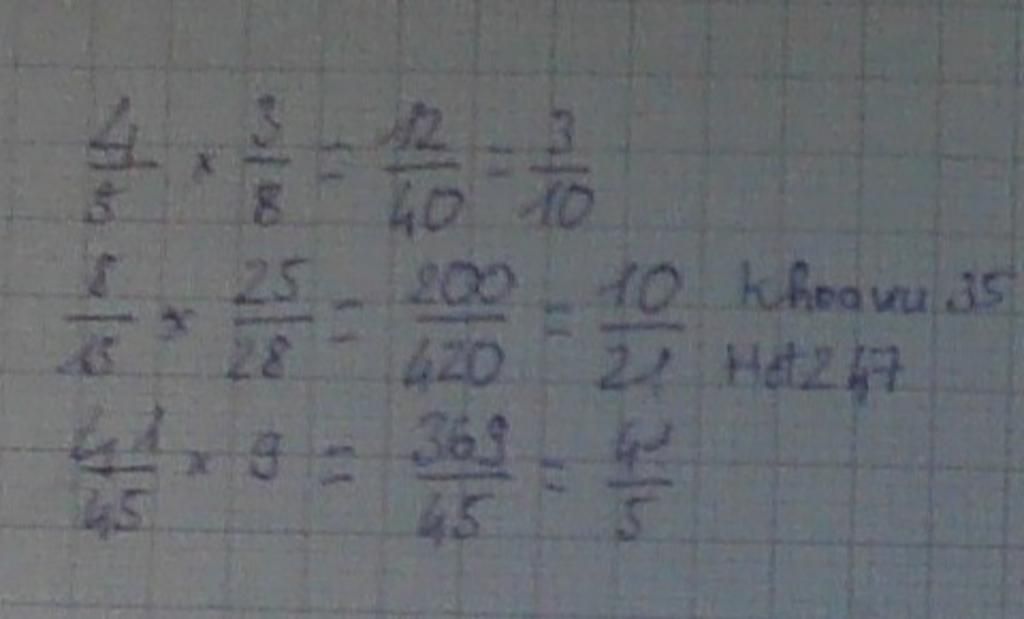 4/5 × 3/8 = 12/40 = 3/10
8/15 × 25/28 = 200/420 = 10/21 Khoavu 35
Hd247
41/45 × 9 = 369/45 = 41/5